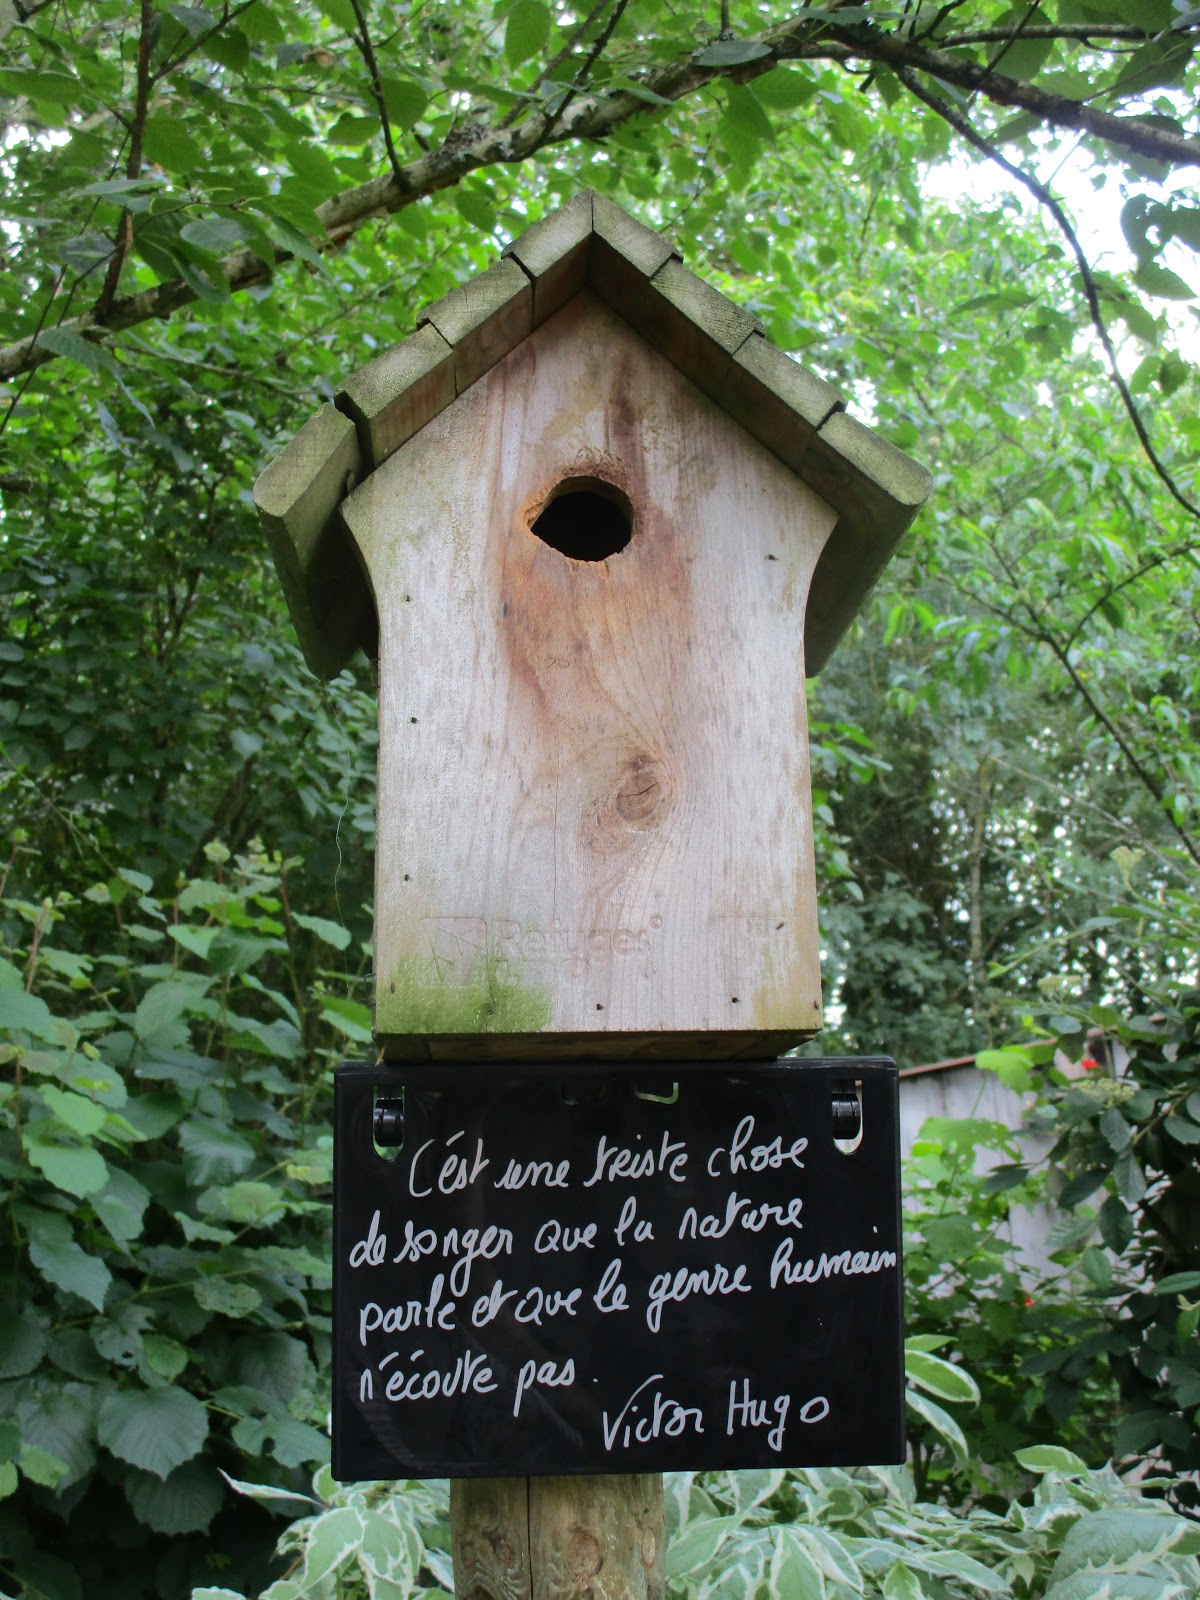 Refuges
C'est une triste chose
de songer que la nature
parle et que le genre humain
n'écoute pas.
Victor Hugo